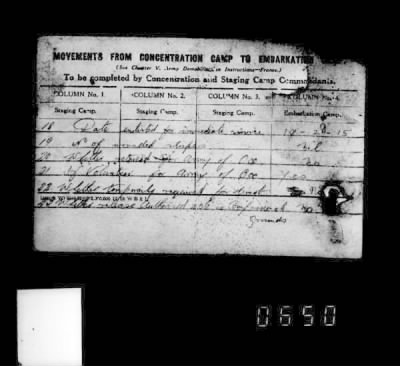 MOVEMENTS FROM CONCENTRATION CAMP TO EMBARKATION
(See Chapter V. Army Demobilization Instructions—France.)
To be completed by Concentration and Staging Camp Commandants.
COLUMN No. 1. COLUMN No. 2. COLUMN No. 3. COLUMN No. 4.
Staging Camp. Staging Camp. Staging Camp. Embarkation Camp.
18 Date enlisted for immediate service 19 15
19 No of wounded stripes Nil
20 Whether retained for Army of Occ No
21 If Volunteer for Army of Occ Yes
22 Whether temporarily required for
23 Whether release authorised on
grounds
0650